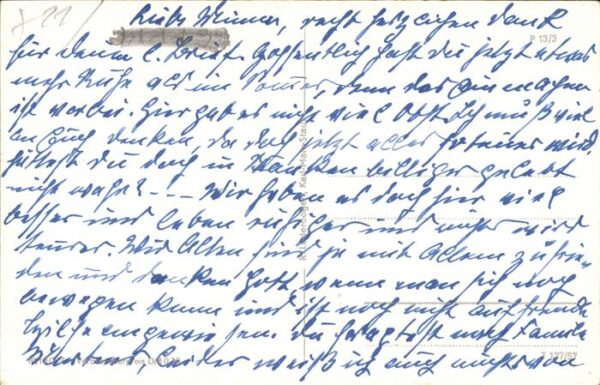 Liebe Minna, recht herzlichen Dank
P 13/3
für Deinen l. Brief. Hoffentlich hast Du jetzt etwas
mehr Ruhe als im Sommer, denn das Einmachen
ist vorbei. Hier gab es nicht viel Obst. Ich muß viel
an Euch denken, da doch jetzt alles teurer wird,
hättest Du doch in Franken billiger gelebt
nicht wahr? - - - Wir haben es doch hier viel
besser und leben ruhiger und nichts wird
teurer. Wir Alten sind ja mit Allem zufrie-
den und danken Gott, wenn man sich noch
bewegen kann und ist noch nicht auf fremde
Hilfe angewiesen. Du fragtest nach Familie
leider weiß ich auch nichts von